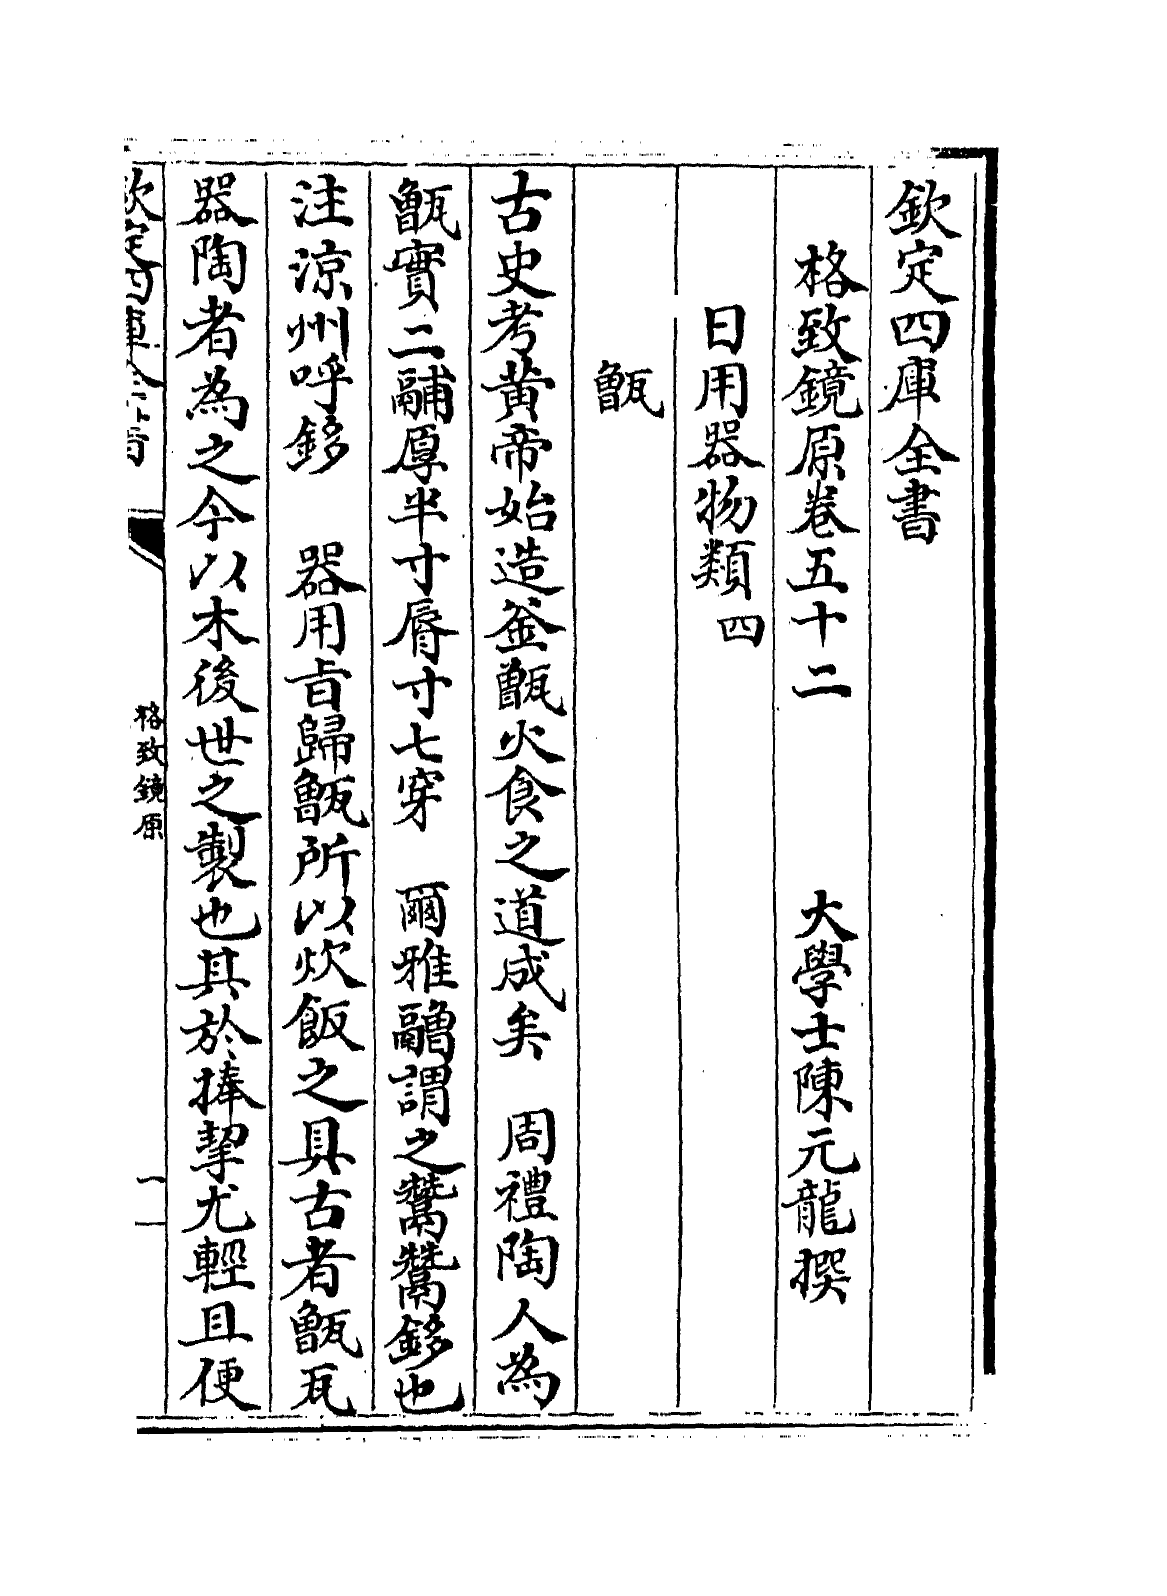 欽定四庫全書
格致鏡原卷五十二　大學士陳元龍撰
日用器物類四
甑
古史考黄帝始造釜甑火食之道成矣　周禮陶人為
甑實二鬴厚半寸脣寸七穿　爾雅䰝謂之鬵鬵鉹也
注涼州呼鉹　器用旨歸甑所以炊飯之具古者甑瓦
器陶者為之今以木後世之製也其於捧挈尤輕且便
欽定四庫全書
格致鏡原
一